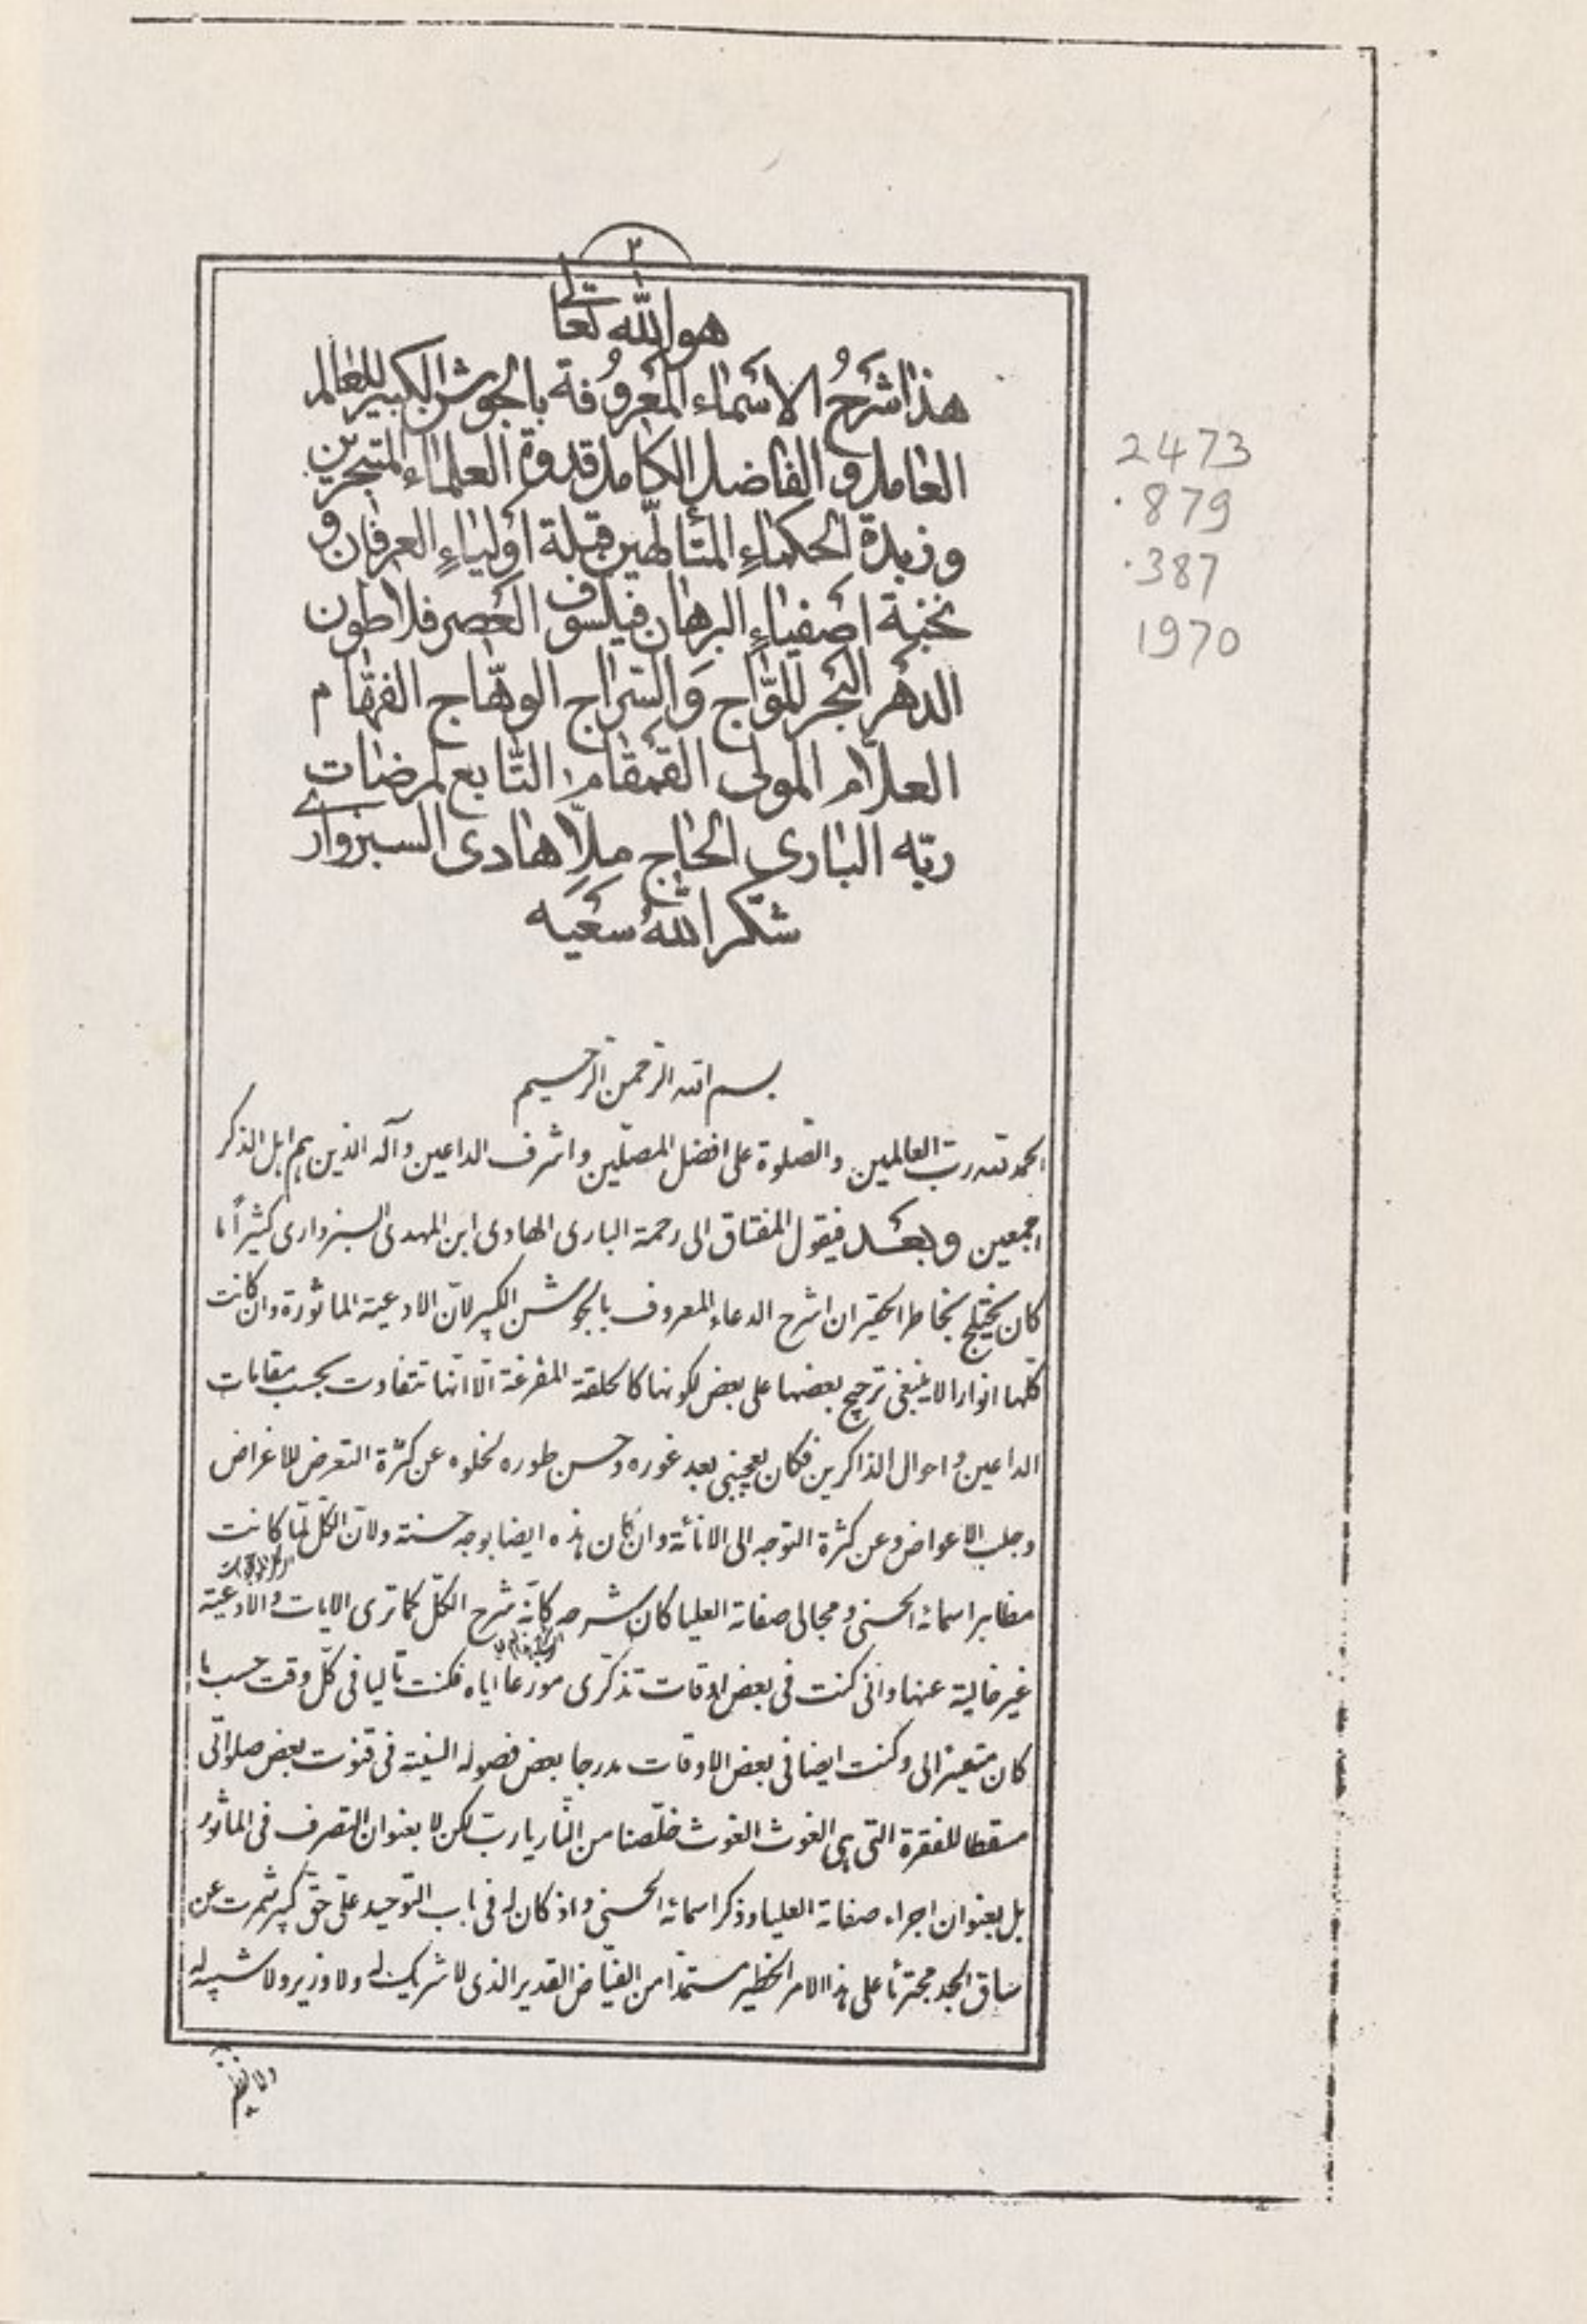 ٢
هو الله تعالى
هذا شرح الاسماء المعروفة بالجوشن الكبير للعالم
العامل و الفاضل الكامل قدوة العلماء المتبحرين
و زبدة الحكماء المتألهين قبلة اولياء العرفان و
نخبة اصفياء البرهان فيلسوف العصر فلاطون
الدهر البحر المواج و السراج الوهاج الفهام
العلام المولى القمقام التابع لمرضات
ربه البارى الحاج ملا هادى السبزوارى
شكر الله سعيه
2473
.879
.387
1970
بسم الله الرحمن الرحيم
الحمد لله رب العالمين والصلوة على افضل المصلين واشرف الداعين وآله الذين هم اهل الذكر
اجمعين وبعد فيقول المفتاق الى رحمة البارى الهادى ابن المهدى السبزوارى كثيراً ما
كان يختلج بخاطر الحقير ان اشرح الدعاء المعروف بالجوشن الكبير لانّ الادعية الماثورة وان كانت
كلها انوارا لا ينبغى ترجيح بعضها على بعض لكونها كالحلقة المفرغة الّا انّها تتفاوت بحسب مقامات
الداعين و احوال الذاكرين فكان يعجبنى بعد غوره وحسن طوره لخلوه عن كثرة التعرض للاغراض
وجلب الاعواض وعن كثرة التوجه الى الانائة وان كان هذه ايضا بوجه حسنة ولانّ الكلّ لمّا كانت
مظاهر اسمائه الحسنى و مجالى صفاته العليا كان شرحه كانّه شرح الكلّ كما ترى الايات والادعية
غير خالية عنها وانى كنت فى بعض اوقات تذكرى موزعا اياه فكنت تاليا فى كلّ وقت حسب ما
كان متعينا لى وكنت ايضا فى بعض الاوقات مدرجا بعض فصوله السنية فى قنوت بعض صلواتى
مسقطا للفقرة التى هى الغوث الغوث خلّصنا من النّار يا ربّ لكن لا بعنوان التصرف فى الماثور
بل بعنوان اجراء صفاته العليا و ذكر اسمائه الحسنى واذ كان له فى باب التوحيد علىّ حقّ كبير شمرت عن
ساق الجد مجترئا على هذا الامر الخطير مستمدّا من الفيّاض القدير الذى لا شريك له ولا وزير ولا شبيه له
ولا نظير